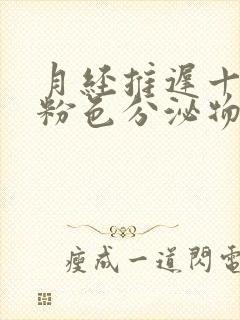 月经推遲十
粉色分泌物
瘦成一道閃電